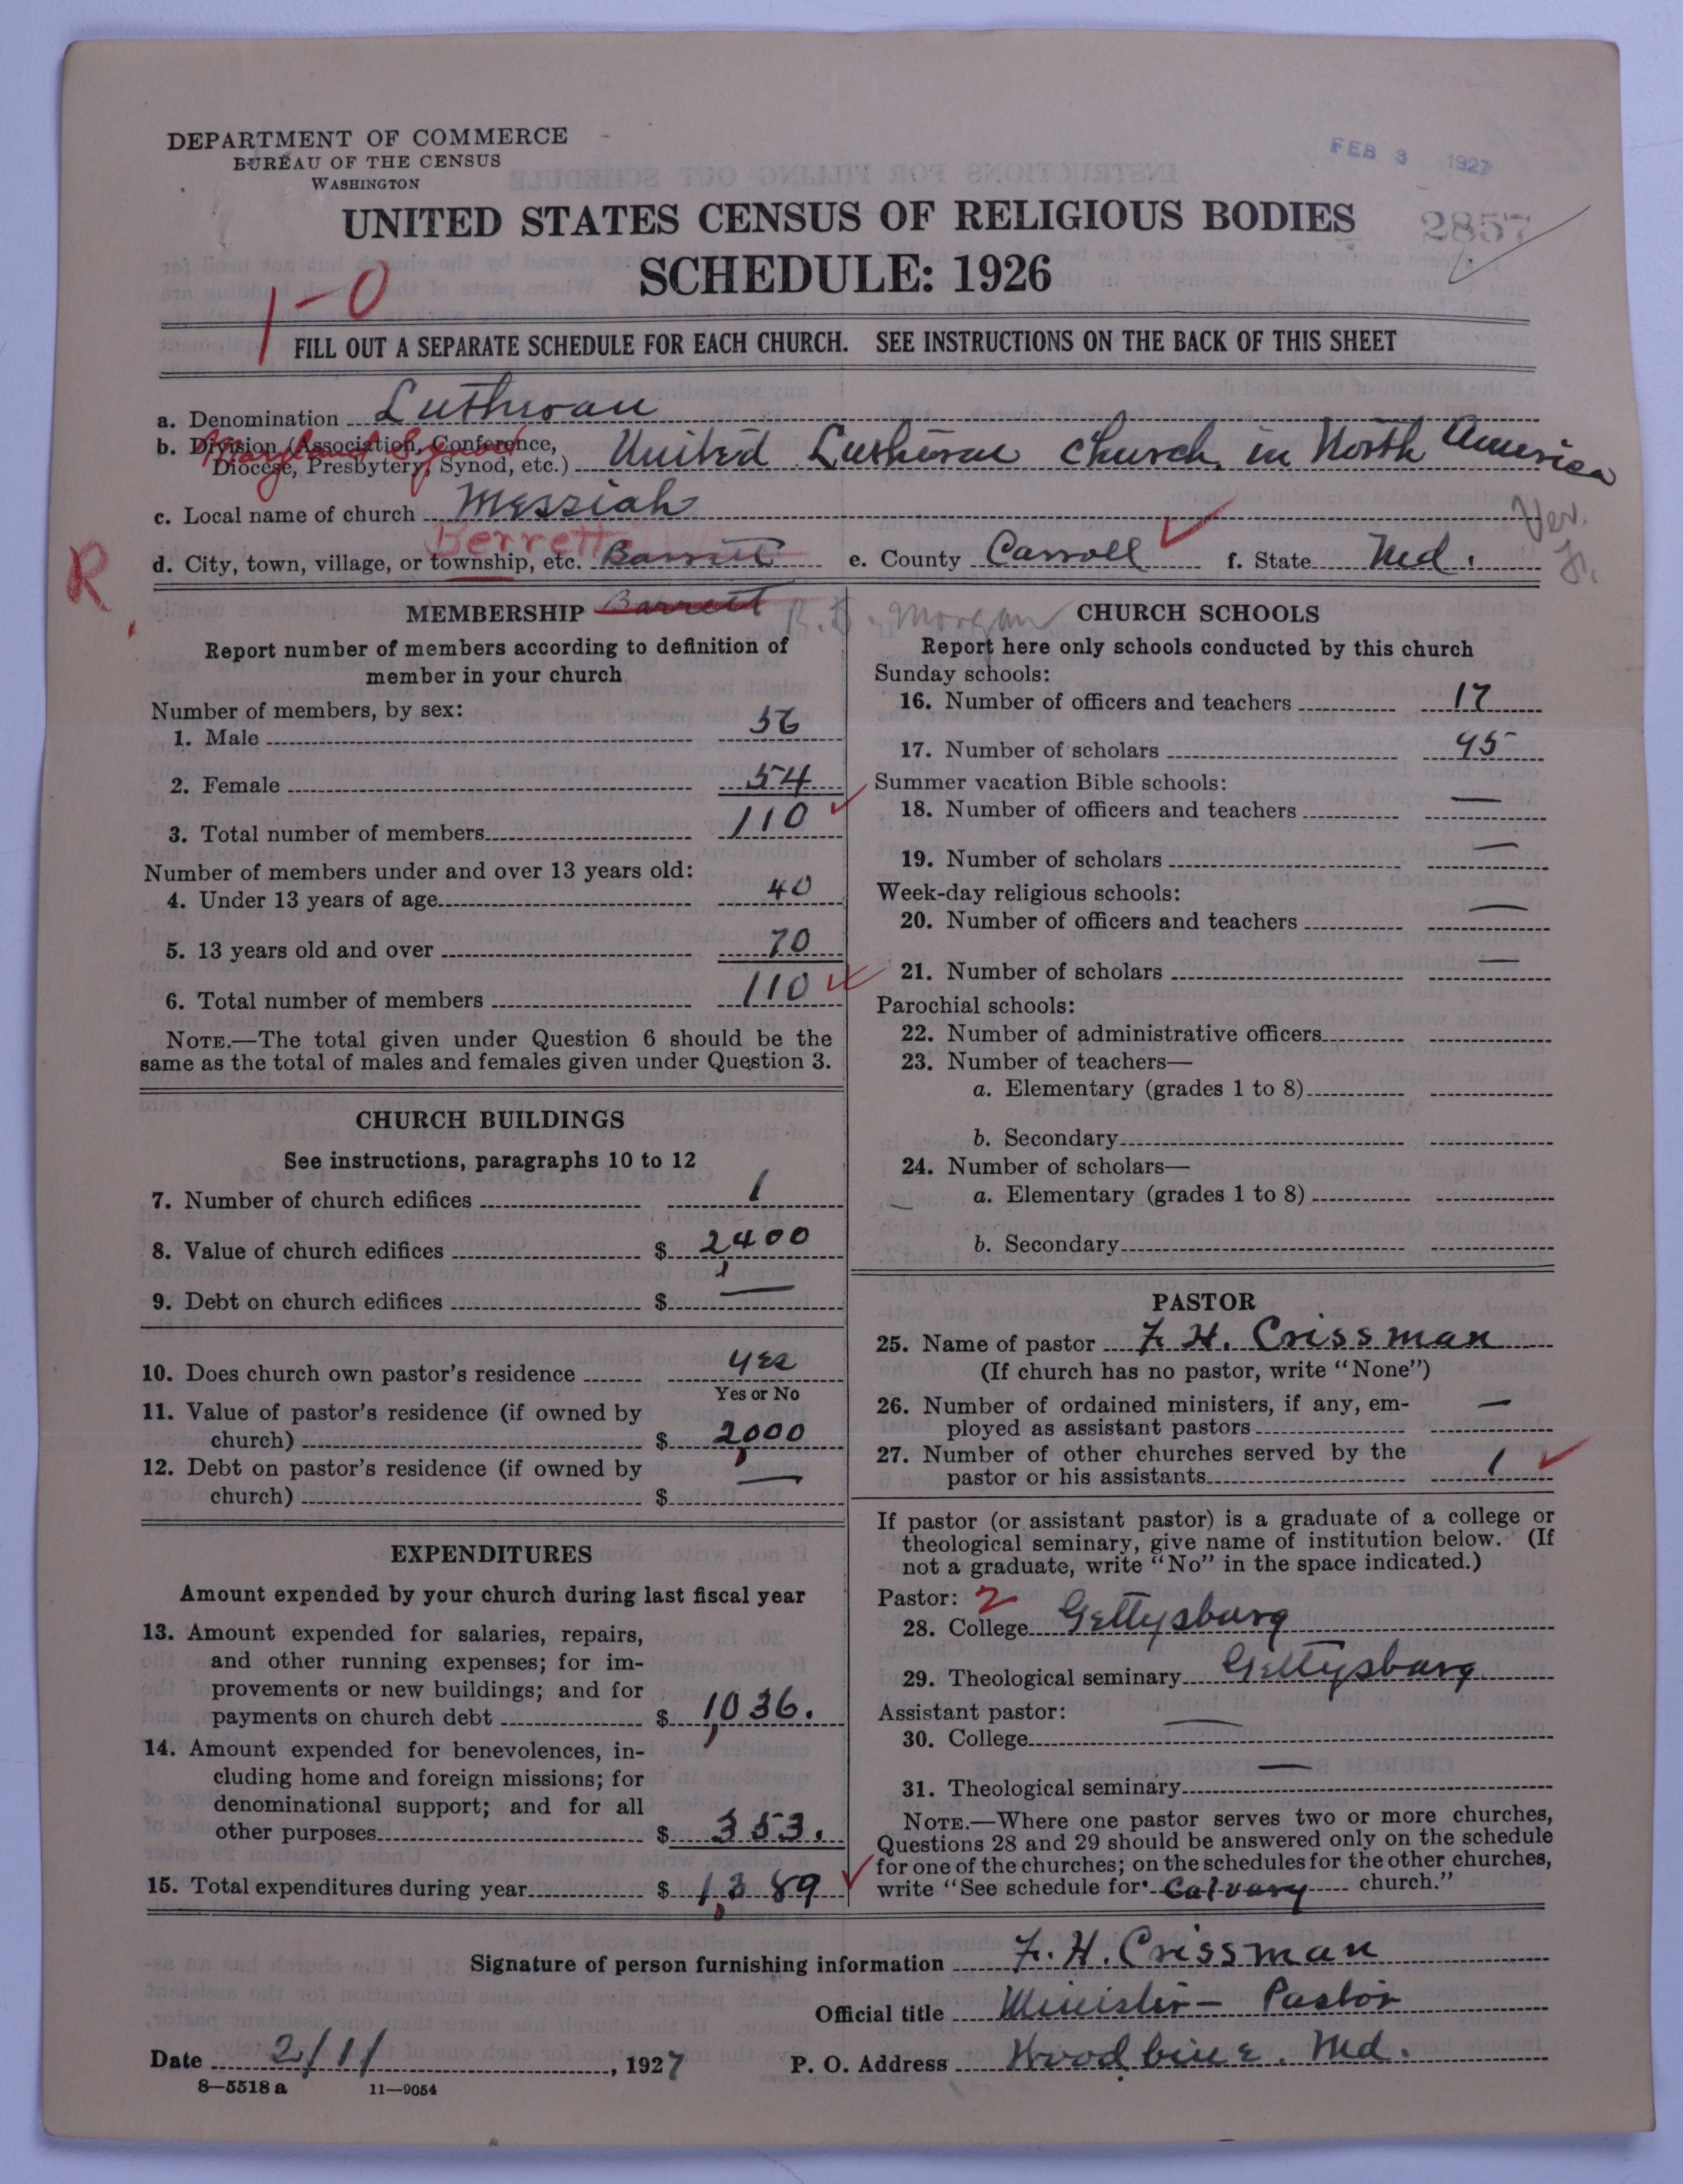 DEPARTMENT OF COMMERCE
BUREAU OF THE CENSUS
WASHINGTON
FEB 3 1927
UNITED STATES CENSUS OF RELIGIOUS BODIES
2857
SCHEDULE: 1926
1-0
FILL OUT A SEPARATE SCHEDULE FOR EACH CHURCH. SEE INSTRUCTIONS ON THE BACK OF THIS SHEET
a. Denomination Lutheran
Maryland Synod
b. Division (Association, Conference,
Diocese, Presbytery, Synod, etc.) United Lutheran Church in North America
c. Local name of church Messiah
Ver.
Berrett
R.
d. City, town, village, or township, etc. Barrett e. County Carroll f. State Md.
MEMBERSHIP Barrett
Morgan
Report number of members according to definition of
member in your church
Number of members, by sex:
1. Male 56
2. Female 54
3. Total number of members 110
Number of members under and over 13 years old:
4. Under 13 years of age 40
5. 13 years old and over 70
6. Total number of members 110
NOTE.—The total given under Question 6 should be the
same as the total of males and females given under Question 3.
CHURCH BUILDINGS
See instructions, paragraphs 10 to 12
7. Number of church edifices 1
8. Value of church edifices $ 2,400
9. Debt on church edifices $ —
10. Does church own pastor's residence yes
Yes or No
11. Value of pastor's residence (if owned by
church) $ 2,000
12. Debt on pastor's residence (if owned by
church) $ —
EXPENDITURES
Amount expended by your church during last fiscal year
13. Amount expended for salaries, repairs,
and other running expenses; for im-
provements or new buildings; and for
payments on church debt $ 1,036.
14. Amount expended for benevolences, in-
cluding home and foreign missions; for
denominational support; and for all
other purposes $ 353.
15. Total expenditures during year $ 1,389
CHURCH SCHOOLS
Report here only schools conducted by this church
Sunday schools:
16. Number of officers and teachers 17
17. Number of scholars 95
Summer vacation Bible schools:
18. Number of officers and teachers —
19. Number of scholars —
Week-day religious schools:
20. Number of officers and teachers —
21. Number of scholars —
Parochial schools:
22. Number of administrative officers
23. Number of teachers—
a. Elementary (grades 1 to 8)
b. Secondary
24. Number of scholars—
a. Elementary (grades 1 to 8)
b. Secondary
PASTOR
25. Name of pastor F. H. Crissman
(If church has no pastor, write "None")
26. Number of ordained ministers, if any, em-
ployed as assistant pastors —
27. Number of other churches served by the
pastor or his assistants 1
If pastor (or assistant pastor) is a graduate of a college or
theological seminary, give name of institution below. (If
not a graduate, write "No" in the space indicated.)
Pastor: 2
28. College Gettysburg
29. Theological seminary Gettysburg
Assistant pastor:
30. College —
31. Theological seminary —
NOTE.—Where one pastor serves two or more churches,
Questions 28 and 29 should be answered only on the schedule
for one of the churches; on the schedules for the other churches,
write "See schedule for Calvary church."
Signature of person furnishing information F. H. Crissman
Official title Minister - Pastor
Date 2/1/, 1927 P. O. Address Woodbine, Md.
8—5518 a 11—9054